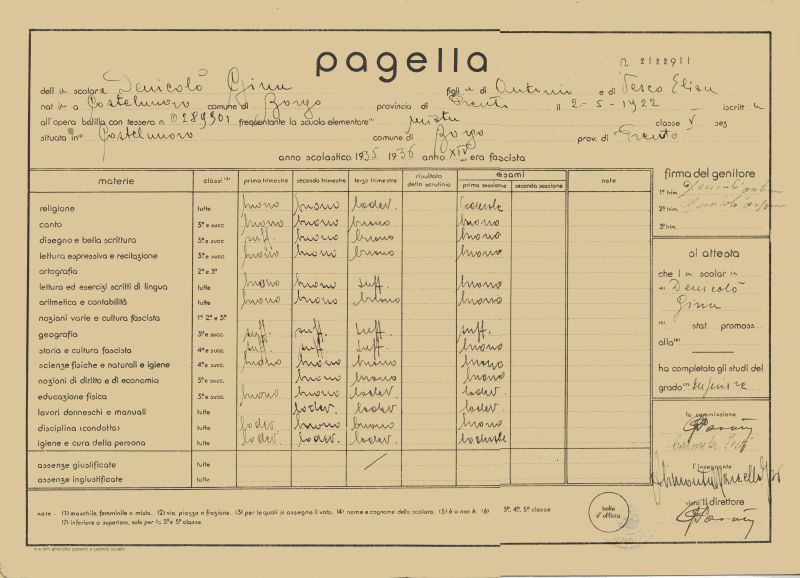 pagella
n. 2122911
dell a scolar a Denicolò Gina figli a di Antonio e di Tesco Elisa
nat a a Castelnuovo comune di Borgo provincia di Trento il 2-5-1922 iscritt a
all'opera balilla con tessera n. 0289901 frequentante la scuola elementare (1) mista classe V sez
situata in (2) Castelnuovo comune di Borgo prov. di Trento
anno scolastico 1935 1936 anno XIV era fascista
materie classi (3) primo trimestre secondo trimestre terzo trimestre risultato dello scrutinio esami prima sessione seconda sessione note
religione tutte buono buono lodev. lodevole
canto 3ª e succ. buono buono buono buono
disegno e bella scrittura 3ª e succ. suff. buono buono buono
lettura espressiva e recitazione 3ª e succ. buono buono buono buono
ortografia 2ª e 3ª
lettura ed esercizi scritti di lingua tutte buono buono suff. buono
aritmetica e contabilità tutte buono buono buono buono
nozioni varie e cultura fascista 1ª 2ª e 3ª
geografia 3ª e succ. suff. suff. suff. suff.
storia e cultura fascista 4ª e succ. suff. suff. suff. buono
scienze fisiche e naturali e igiene 4ª e succ. buono buono buono buono
nozioni di diritto e di economia 5ª e succ. buono buono buono
educazione fisica 3ª e succ. buono buono lodev. lodev.
lavori donneschi e manuali tutte lodev. lodev. lodev.
disciplina (condotta) tutte lodev. buono buono buono
igiene e cura della persona tutte lodev. lodev. lodev. lodevole
assenze giustificate tutte
assenze ingiustificate tutte
firma del genitore
1º trim. Denicolò
2º trim. Denicolò
3º trim.
si attesta
che l a scolar a
(4) Denicolò
Gina
(5) stat promoss
alla (6)
ha completato gli studi del
grado (7) superiore
la commissione
l'insegnante
visto: il direttore
bollo d'ufficio
note - (1) maschile, femminile o mista. (2) via, piazza o frazione. (3) per le quali si assegna il voto. (4) nome e cognome dello scolaro. (5) è o non è. (6) 3ª. 4ª. 5ª classe
(7) inferiore o superiore, solo per la 3ª e 5ª classe